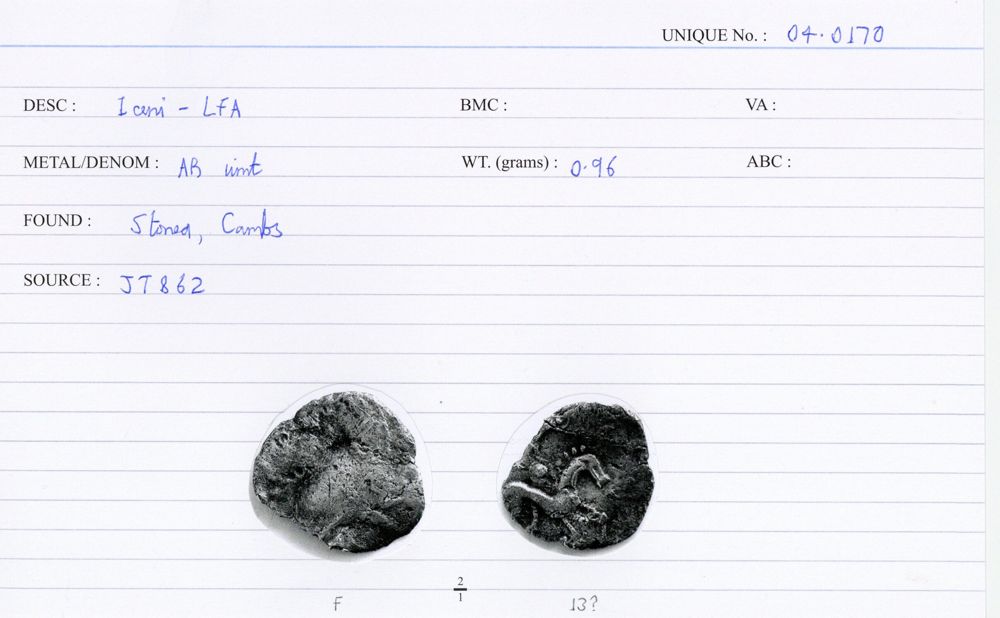 UNIQUE No. : 04.0170
DESC : Iceni - LFA BMC : VA :
METAL/DENOM : AR unit WT. (grams) : 0.96 ABC :
FOUND : Stonea, Cambs
SOURCE : JT862
2/1
F 13?